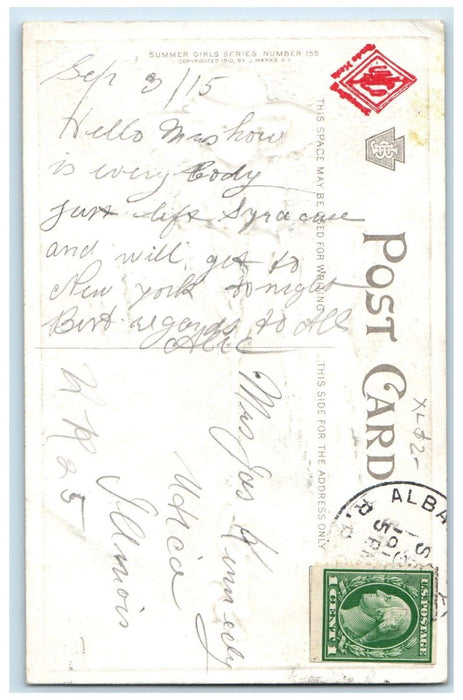 SUMMER GIRLS SERIES NUMBER 155
COPYRIGHTED 1910, BY J. MARKS N.Y.
Sep 3/15
Hello Mrs how
is every body
just left Syracuse
and will get to
New York tonight
Best regards to All
THIS SPACE MAY BE USED FOR WRITING
THIS SIDE FOR THE ADDRESS ONLY
POST CARD
Mrs Jos Kennedy
Utica
Illinois
XL$2-
ALBA
R.
U.S. POSTAGE
1 CENT 1